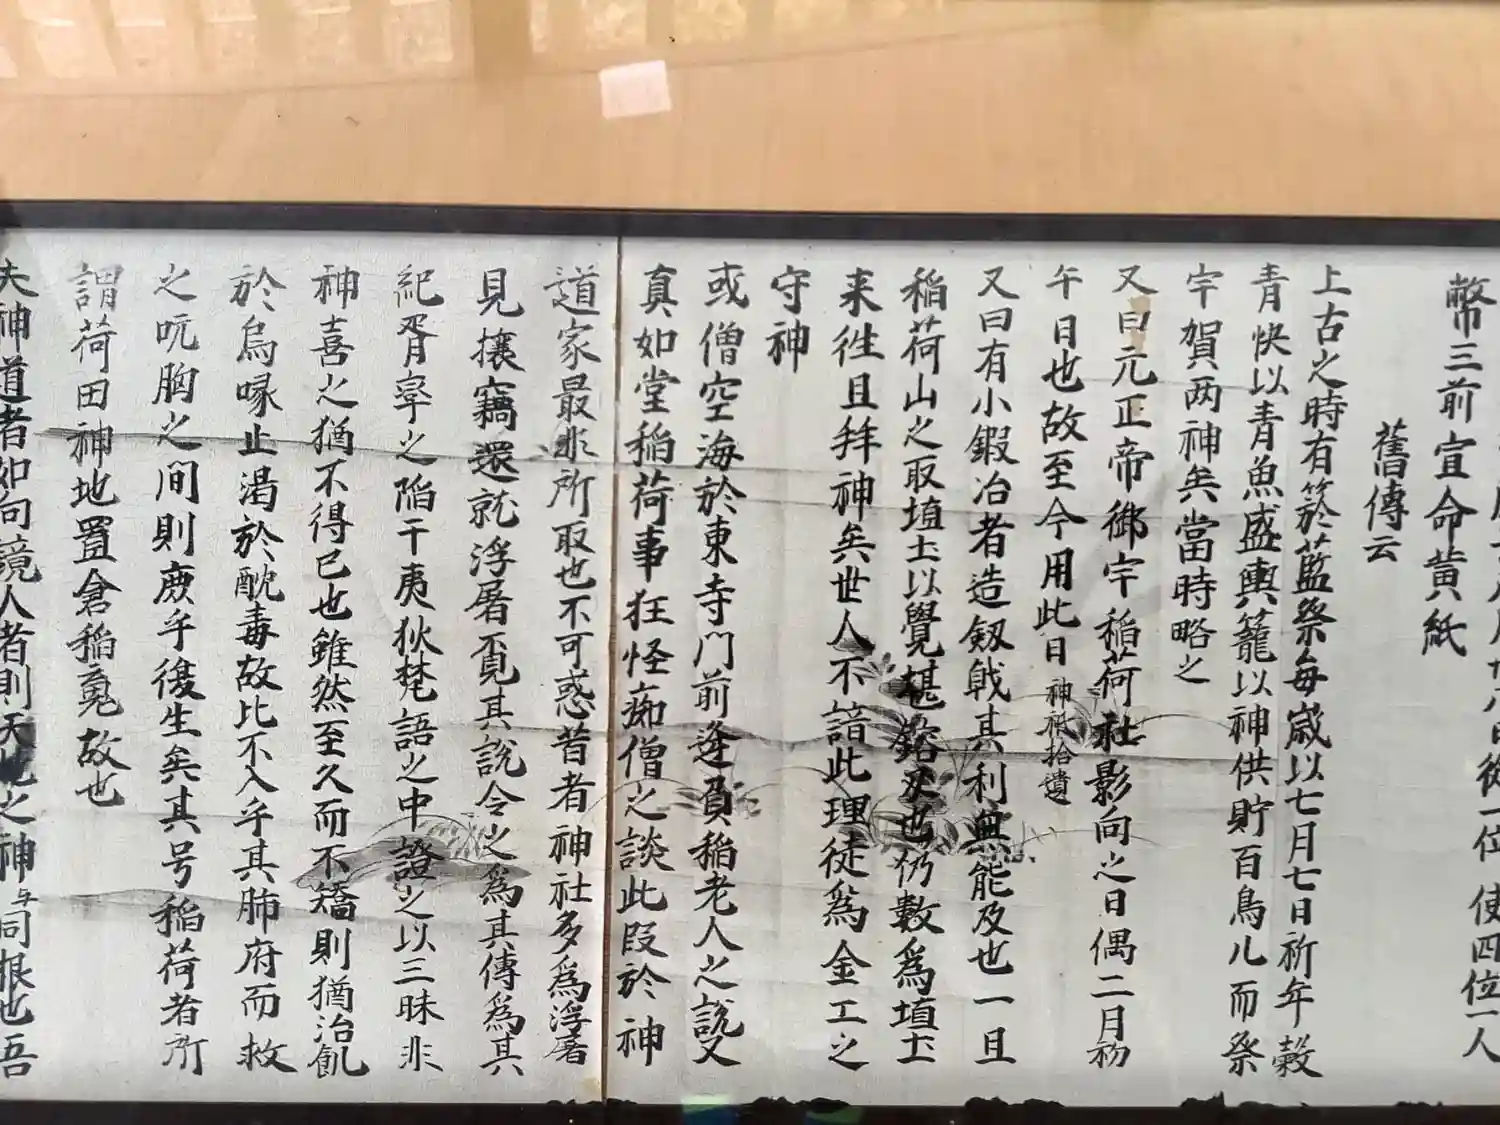 月廿八日從一位使四位一人
幣三前宣命黄紙
舊傳云
上古之時有筊於藍祭每歳以七月七日祈年糓
青快以青魚盛輿籠以神供貯百鳥儿而祭
宇賀两神矣當時略之
又曰元正帝御宇稲荷社影向之日偶二月初
午日也故至今用此日神祇拾遺
又曰有小鍜冶者造釼戟其利無能及也一旦
稲荷山之取埴土以覺堪鎔刃也仍數為埴土
来徃且拜神矣世人不諳此理徒為金工之
守神
或僧空海於東寺門前逢負稲老人之說又
真如堂稲荷事狂怪痴僧之談此段於神
道家最非所取也不可惑昔者神社多為浮屠
見攘竊還就浮屠覓其說令之為其傳為其
紀胥宰之陥干夷狄梵語之中證之以三昧非
神喜之猶不得已也雖然至久而不矯則猶治飢
於烏喙止渴於酖毒故比不入乎其肺府而救
之吭胸之间則庻乎復生矣其号稲荷者所
謂荷田神地置倉稲䰟故也
夫神道者如向鏡人者則天地之神与同根也吾